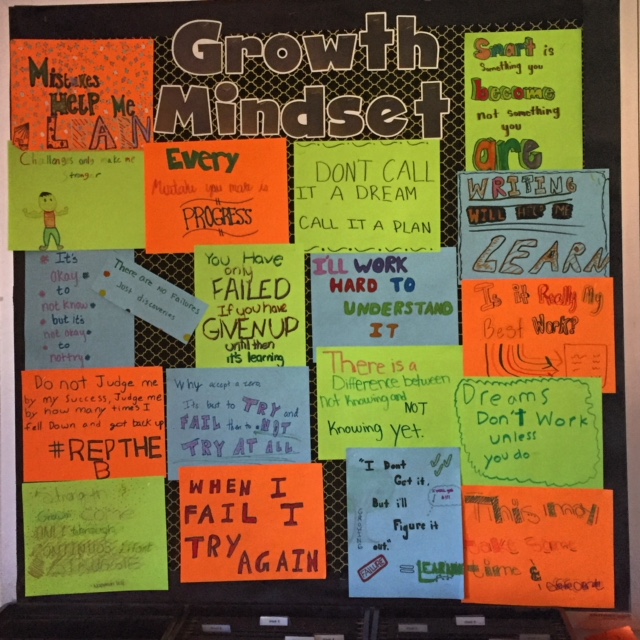 Growth
Mindset
Mistakes
HELP Me
LEARN
Smart is
Something you
become
not something
you
are
Challenges only make me
Stronger
Every
Mistake you make is
PROGRESS
DONT CALL
IT A DREAM
CALL IT A PLAN
WRITING
WILL HELP ME
LEARN
It's
okay
to
not know
but it's
not okay
to
not try
There are no failures
Just discoveries
You Have
only
FAILED
If you have
GIVEN UP
until then
it's learning
I'LL WORK
HARD TO
UNDERSTAND
IT
Is it Really My
Best Work?
Do not Judge me
by my success, Judge me
by how many times I
fell Down and got back up
#REP THE
B
Why accept a zero
It's best to TRY and
FAIL than to NOT
TRY AT ALL
There is a
Difference between
Not Knowing and NOT
Knowing yet.
Dreams
Don't Work
unless
you do
Strength &
Growth Come
ONLY through
CONTINUOUS Effort
& STRUGGLE
WHEN I
FAIL I
TRY
AGAIN
"I Dont
Get it,
But i'll
Figure it
out."
FAILURE
= LEARNING
This may
take some
time &